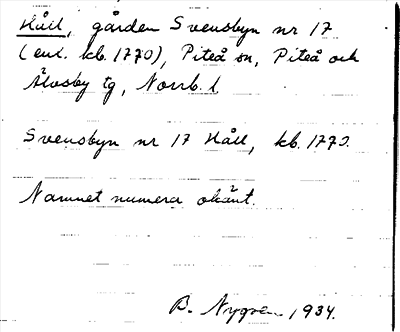 Håll, gården Svensbyn nr 17
(enl. kb. 1770), Piteå sn, Piteå och
Älvsby tg, Norrb. l.
Svensbyn nr 17 Håll, kb. 1770.
Namnet numera okänt.
B. Nygren 1934.